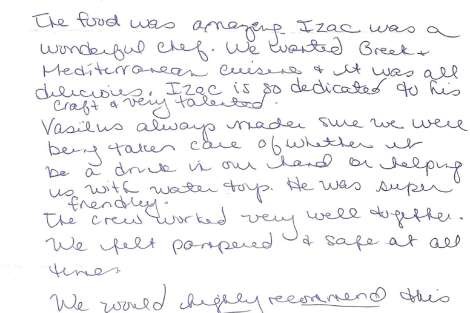 The food was amazing Izac was a
wonderful chef. We wanted Greek &
Mediterranean cuisine & it was all
delicious. Izac is so dedicated to his
craft & very talented.
Vasilus always made sure we were
being taken care of whether it
be a drink in our hand or helping
us with water toys. He was super
friendly.
The crew worked very well together.
We felt pampered & safe at all
times
We would highly recommend this